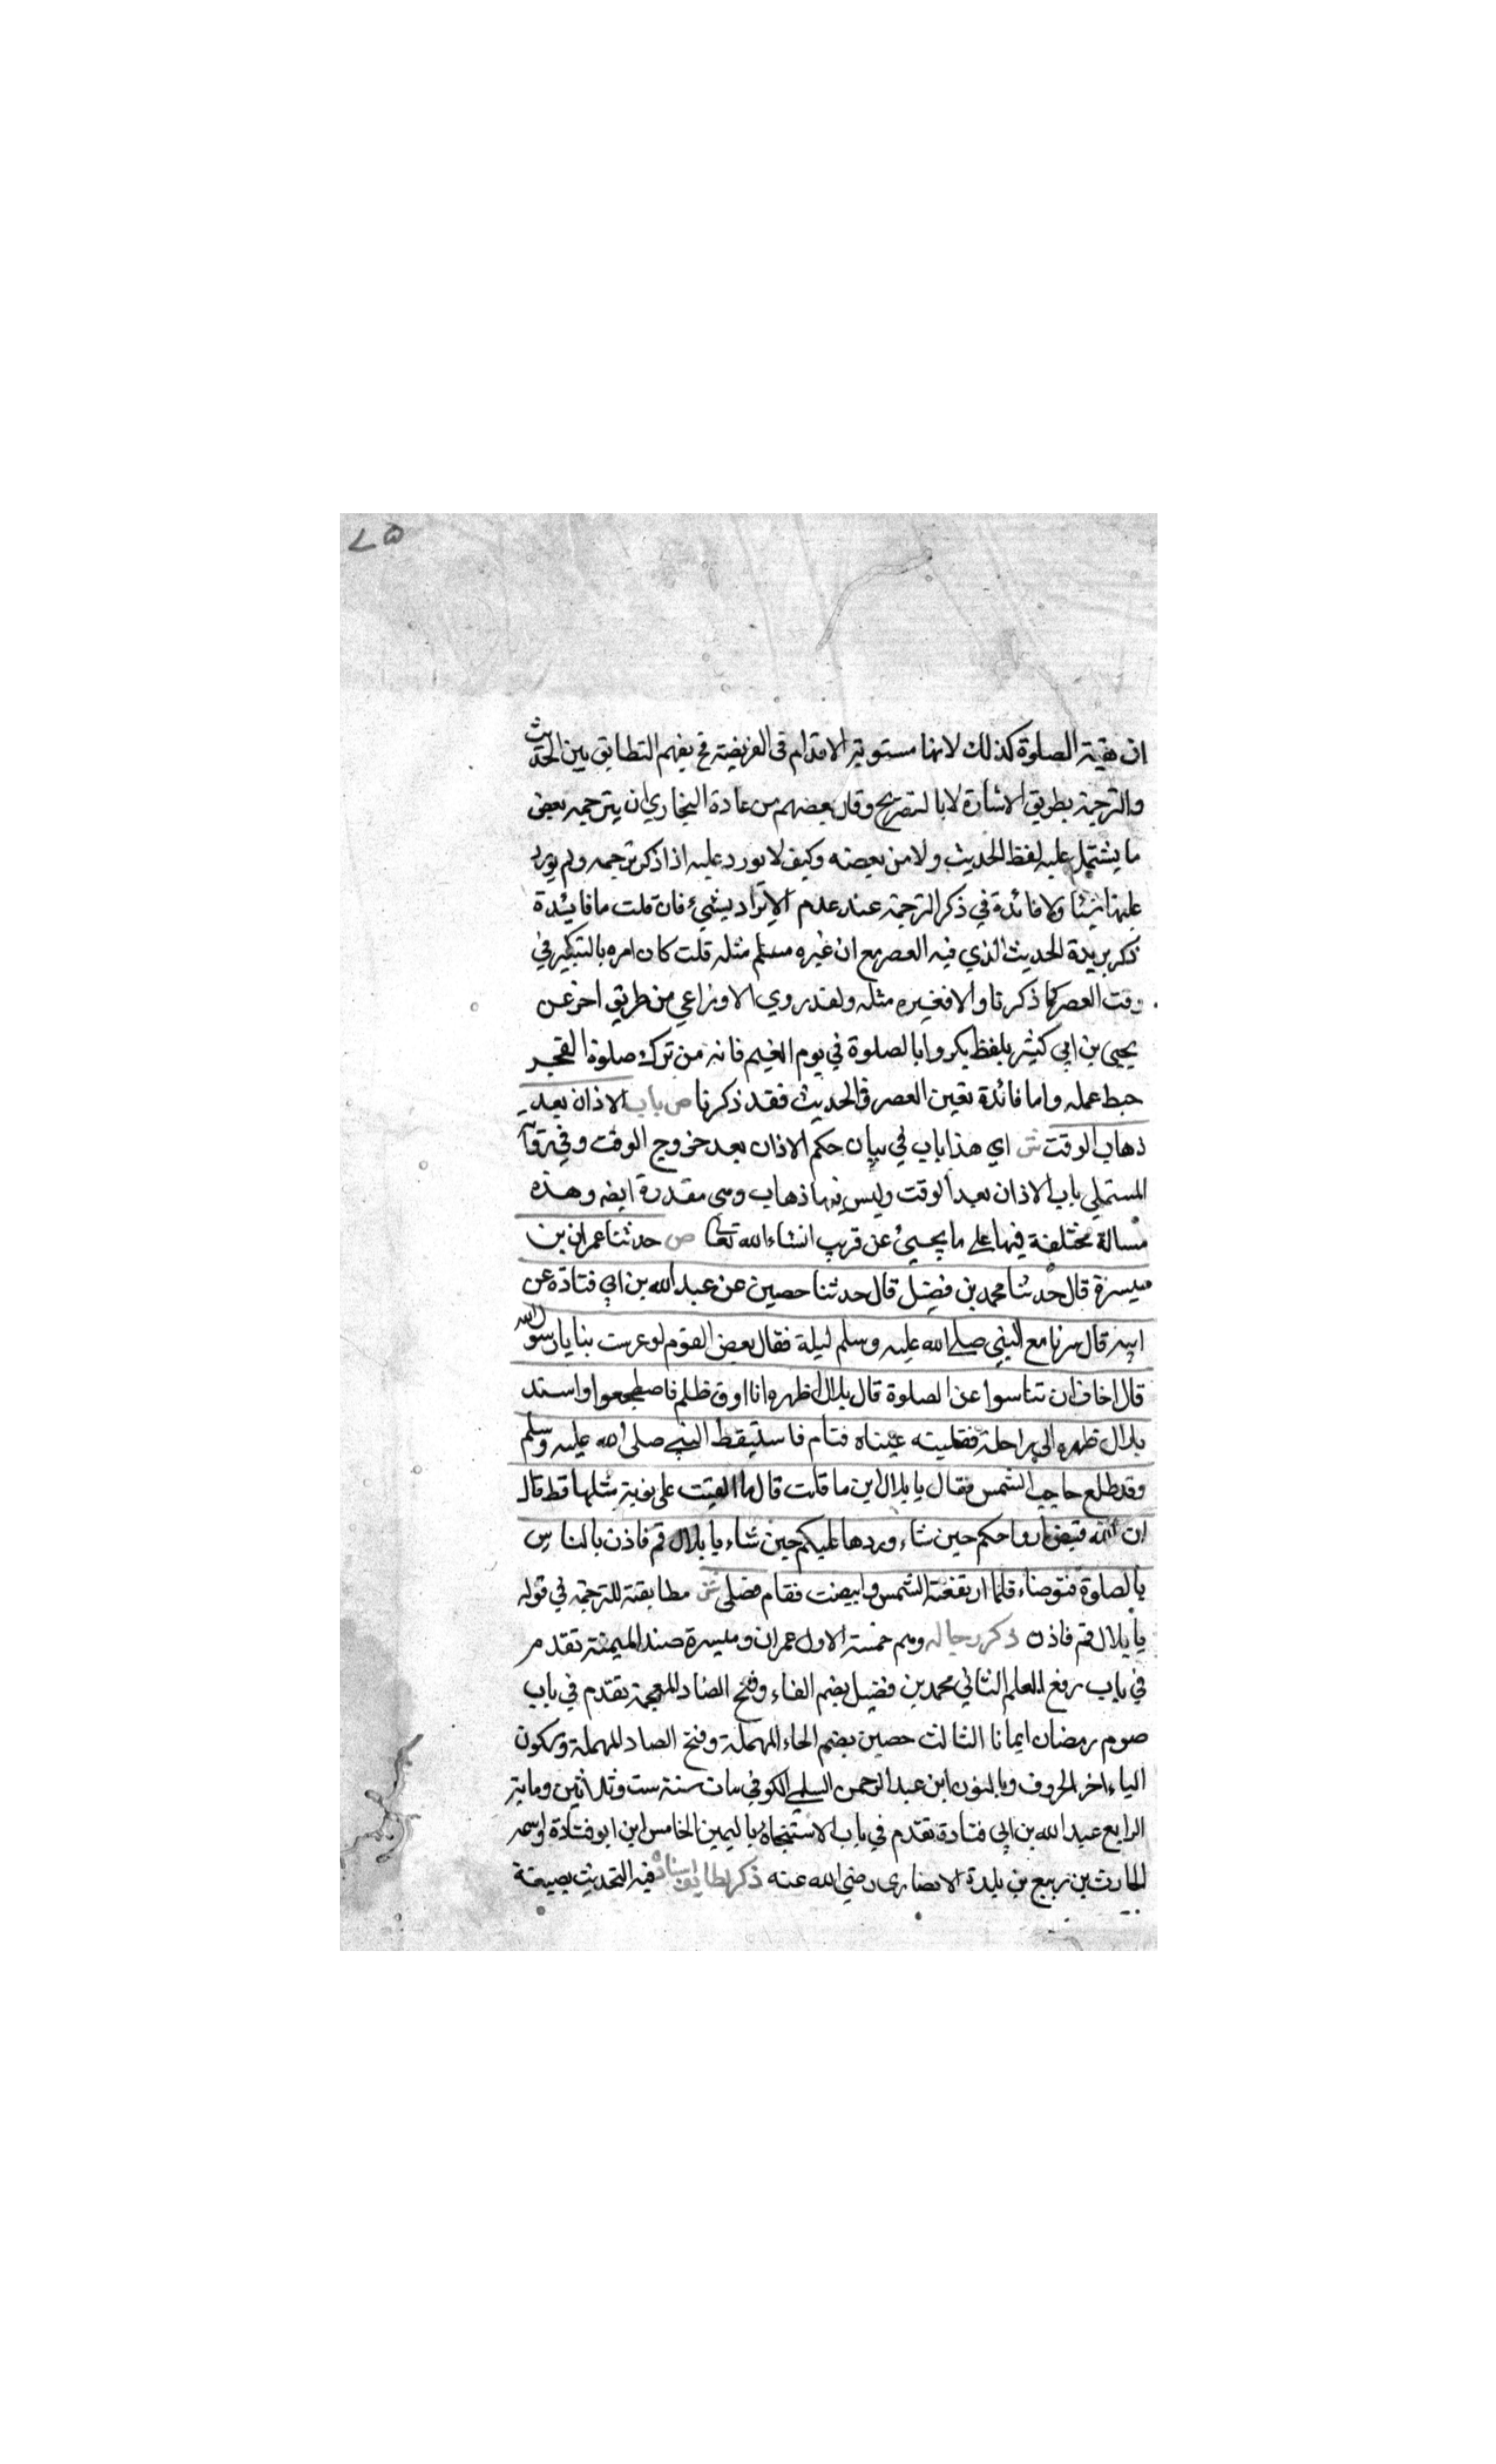 ٧٥
ان بقية الصلوة كذلك لانها مستوية الاقدام في الفريضة فح يفهم التطابق بين الحديث
والترجمة بطريق الاشارة لا بالتصريح وقال بعضهم من عادة البخاري ان يترجمه ببعض
ما يشتمل عليه لفظ الحديث ولا من بعضه وكيف لا يورد عليه اذا ذكر ترجمه ولم يورد
عليها شيئا ولا فائدة في ذكر الترجمة عند عدم الايراد بشيئ فان قلت ما فائدة
ذكر بريدة الحديث الذي فيه العصر مع ان غيره مسلم مثله قلت كان امره بالتبكير في
وقت العصر كما ذكرنا والا فغيره مثله ولقد روي الاوزاعي من طريق اخر عن
يحيي بن ابي كثير بلفظ بكروا بالصلوة في يوم الغيم فانه من ترك صلوة الفجر
حبط عمله واما فائدة تعين العصر في الحديث فقد ذكرنا ص باب الاذان بعد
ذهاب الوقت ش اي هذا باب في بيان حكم الاذان بعد خروج الوقت وفي
المستملي باب الاذان بعد الوقت وليس فيها ذهاب وهي مقدرة ايضه وهذه
مسالة مختلفة فيها علي ما يجيئ عن قريب انشاء الله تعا ص حدثنا عمران بن
ميسرة قال حدثنا محمد بن فضيل قال حدثنا حصين عن عبد الله بن ابي قتادة عن
ابيه قال سرنا مع النبي صلى الله عليه وسلم ليلة فقال بعض القوم لو عرست بنا يا رسول الله
قال اخاف ان تناسوا عن الصلوة قال بلال ظهره انا اوقظلم فاصطجعوا واسند
بلال ظهره الي راحلة فغلبته عيناه فنام فاستيقظ النبي صلى الله عليه وسلم
وقد طلع حاجب الشمس فقال يا بلال اين ما قلت قال ما القيت على نومة مثلها قط قال
ان الله قبض ارواحكم حين شاء وردها عليكم حين شاء يا بلال قم فاذن بالناس
بالصلوة فتوضاء فلما ارتفعت الشمس وابيضت فقام فصلي ش مطابقته للترجمة في قوله
يا بلال قم فاذن ذكر رجاله وهم خمسة الاول عمران وميسرة ضد الميمنة تقدم
في باب رفع العلم الثاني محمد بن فضيل بضم الفاء وفتح الضاد المعجمة تقدم في باب
صوم رمضان ايمانا الثالث حصين بضم الحاء المهملة وفتح الصاد المهملة وسكون
الياء اخر الحروف وبالنون ابن عبد الرحمن السلمي الكوفي مات سنة ست وثلاثين وماية
الرابع عبد الله بن ابي قتادة تقدم في باب الاستنجاء باليمين الخامس ابن ابو قتادة واسمه
الحارث بن ربيع بن بلدة الانصاري رضي الله عنه ذكر لطايف اسناده فيه التحديث بصيغة